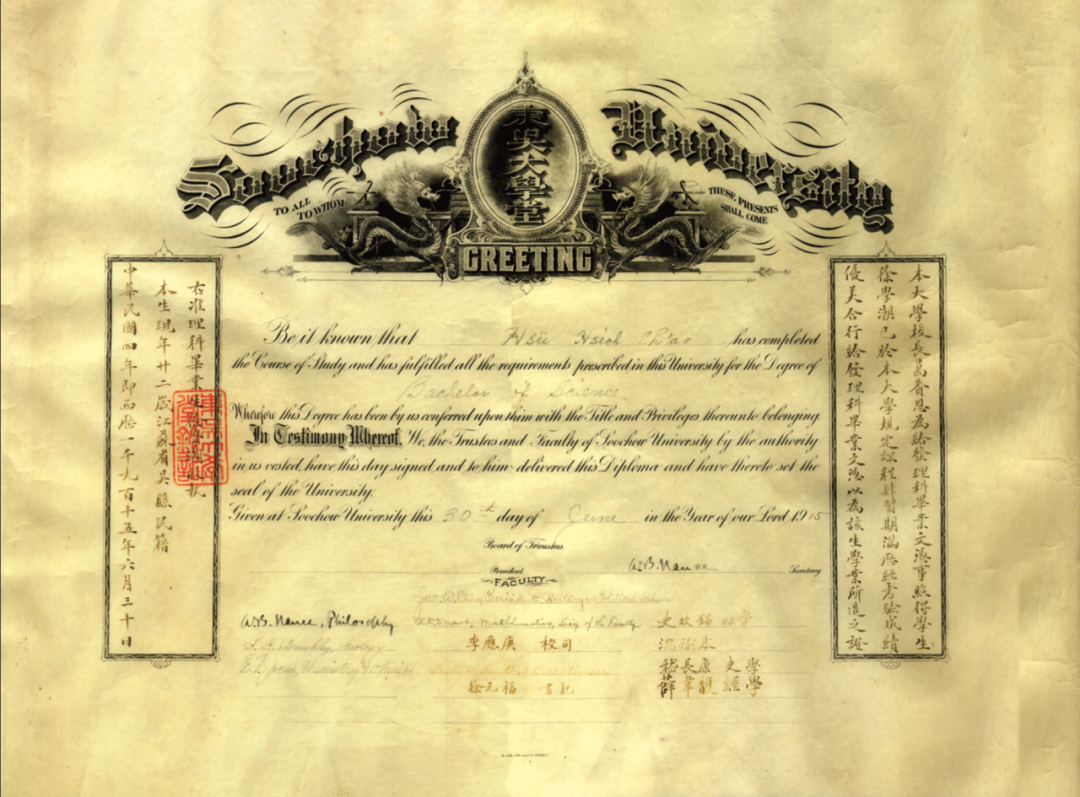 Soochow University
東吳大學堂
TO ALL TO WHOM
THESE PRESENTS SHALL COME
GREETING
Be it known that Hsü Hsioh Ch'ao has completed
the Course of Study and has fulfilled all the requirements prescribed in this University for the Degree of
Bachelor of Science
Wherefore this Degree has been by us conferred upon him with the Title and Privileges thereunto belonging.
In Testimony Whereof, We, the Trustees and Faculty of Soochow University by the authority
in us vested, have this day signed and to him delivered this Diploma and have thereto set the
seal of the University.
Given at Soochow University this 30th day of June in the Year of our Lord 1915
Board of Trustees
President
W.B. Nance Secretary
FACULTY
W.B. Nance, Philosophy
Mathematics, Sec'y of the Faculty
李應庚 校司
沈樹本
嵇長康 史學
徐允福
薛韋馥 經學
本大學校長葛賚恩為給發理科畢業文憑事照得學生
徐學潮已於本大學規定課程肄習期滿歷經考驗成績
優美合行給發理科畢業文憑以為該生學業所造之證
右准理科畢業生徐學潮收執
本生現年廿二歲江蘇省吳縣民籍
中華民國四年即西歷一千九百十五年六月三十日